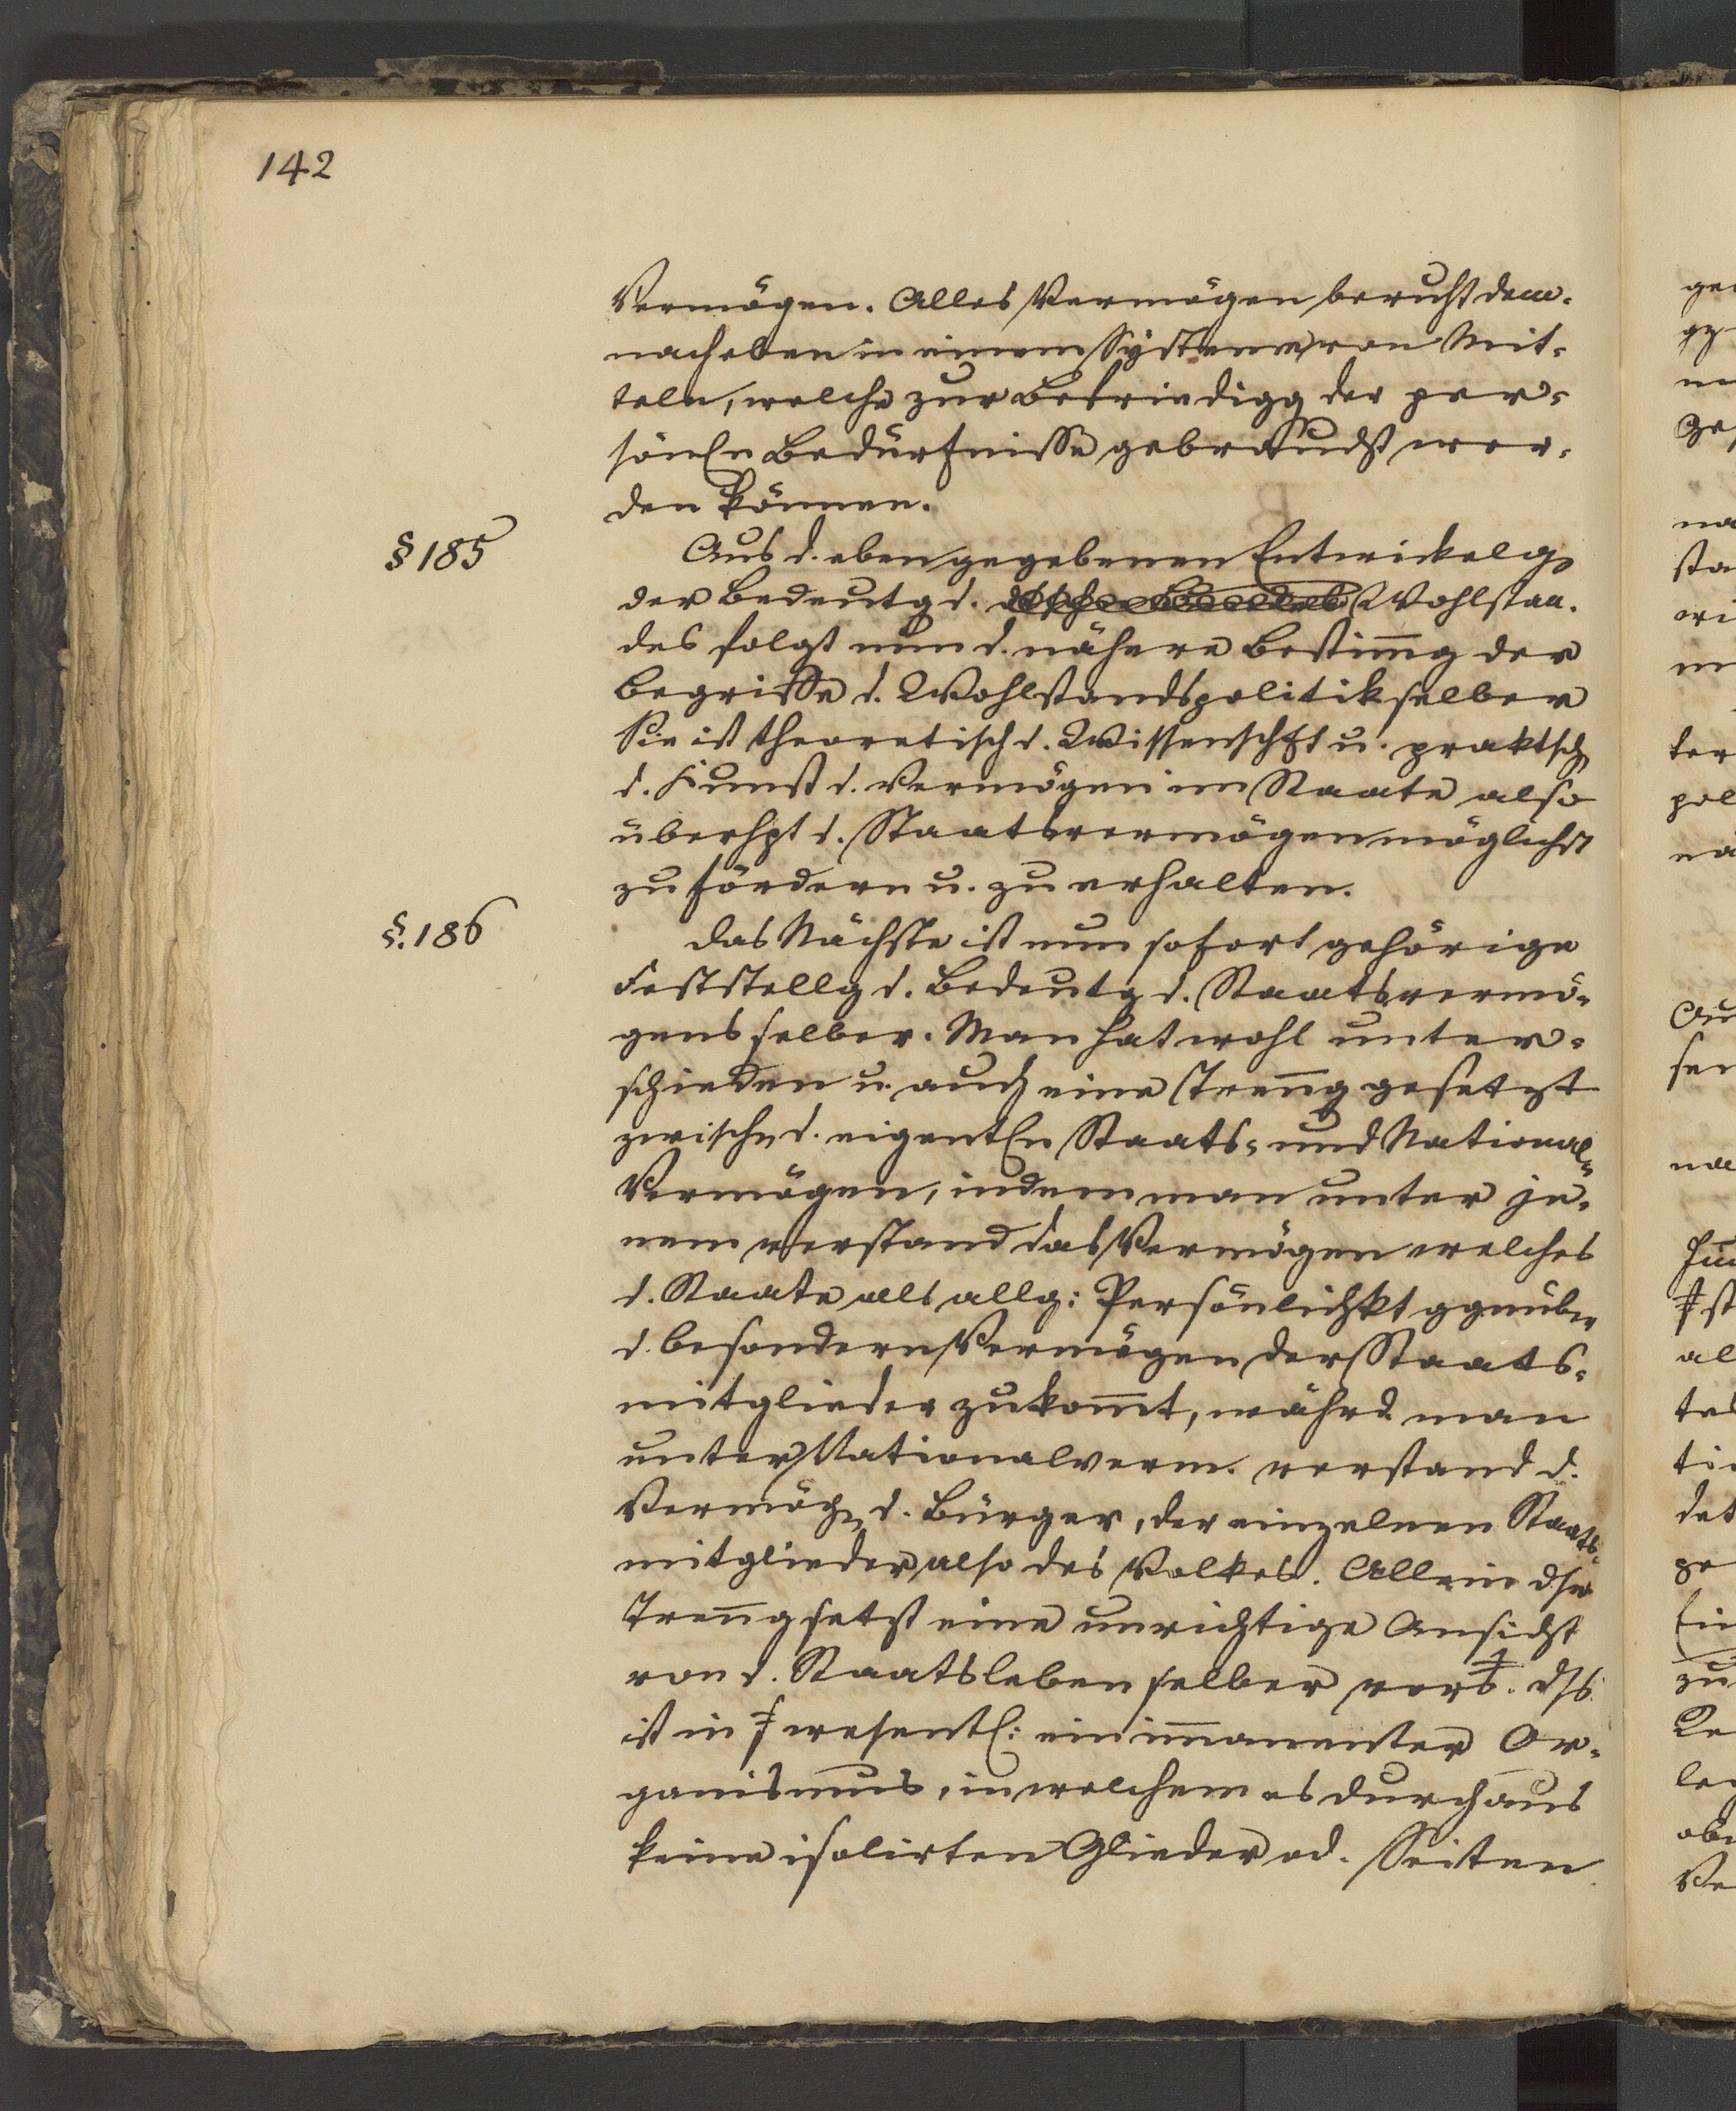 142
Vermögen. Alles Vermögen beruht dem-
nach eben in einem Systeme von Mit-
teln, welche zur Befriedigg der per-
sönln Bedürfnisse gebraucht wer-
den können.
§ 185
Aus d. eben gegebenen Entwickelg
der Bedeutg d. Wohlstan-
des folgt nun d. nähere Bestim̄g der
Begriffe d. Wohlstandspolitik selber
Sie ist theoretisch d. Wissenschft u. praktsch
d. Kunst d. Vermögen im Staate also
überhpt d. Staatsvermögen möglichst
zu fördern u. zu erhalten.
§. 186
Das Nächste ist nun sofort gehörige
Feststellg d. Bedeutg d. Staatsvermö-
gens selber. Man hat wohl unter-
schieden u. auch eine Tren̄g gesetzt
zwischn d. eigentln Staats- und National-
Vermögen, indem man unter je-
nem verstand das Vermögen welches
d. Staate als allg: Persönlichkt ggnüber
d. besondern Vermögen der Staats-
mitglieder zukom̄t, währd. man
unter Nationalverm. verstand d.
Vermögn d. Bürger, der einzelnen Staats-
mitglieder also des Volkes. Allein dse
Tren̄g setzt eine unrichtige Ansicht
von d. Staatsleben selber dss
ist in wesentl: ein im̄anenter Or-
ganismus, in welchem es durchaus
keine isolirten Glieder od. Seiten